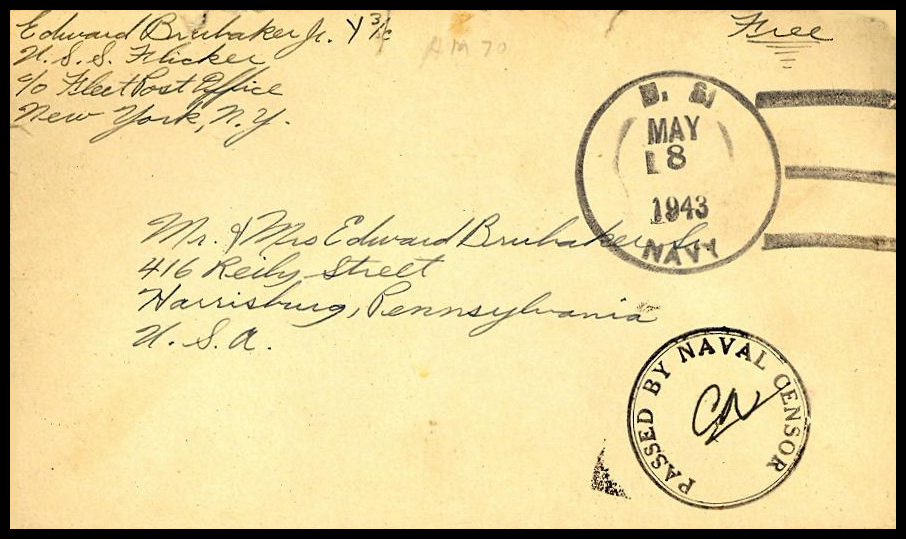 Edward Brubaker Jr. Y 3/c
U. S. S. Flicker
c/o Fleet Post Office
New York, N.Y.
Free
AM 70
U. S.
MAY
8
1943
NAVY
Mr. & Mrs Edward Brubaker Sr.
416 Reily Street
Harrisburg, Pennsylvania
U. S. A.
PASSED BY NAVAL CENSOR